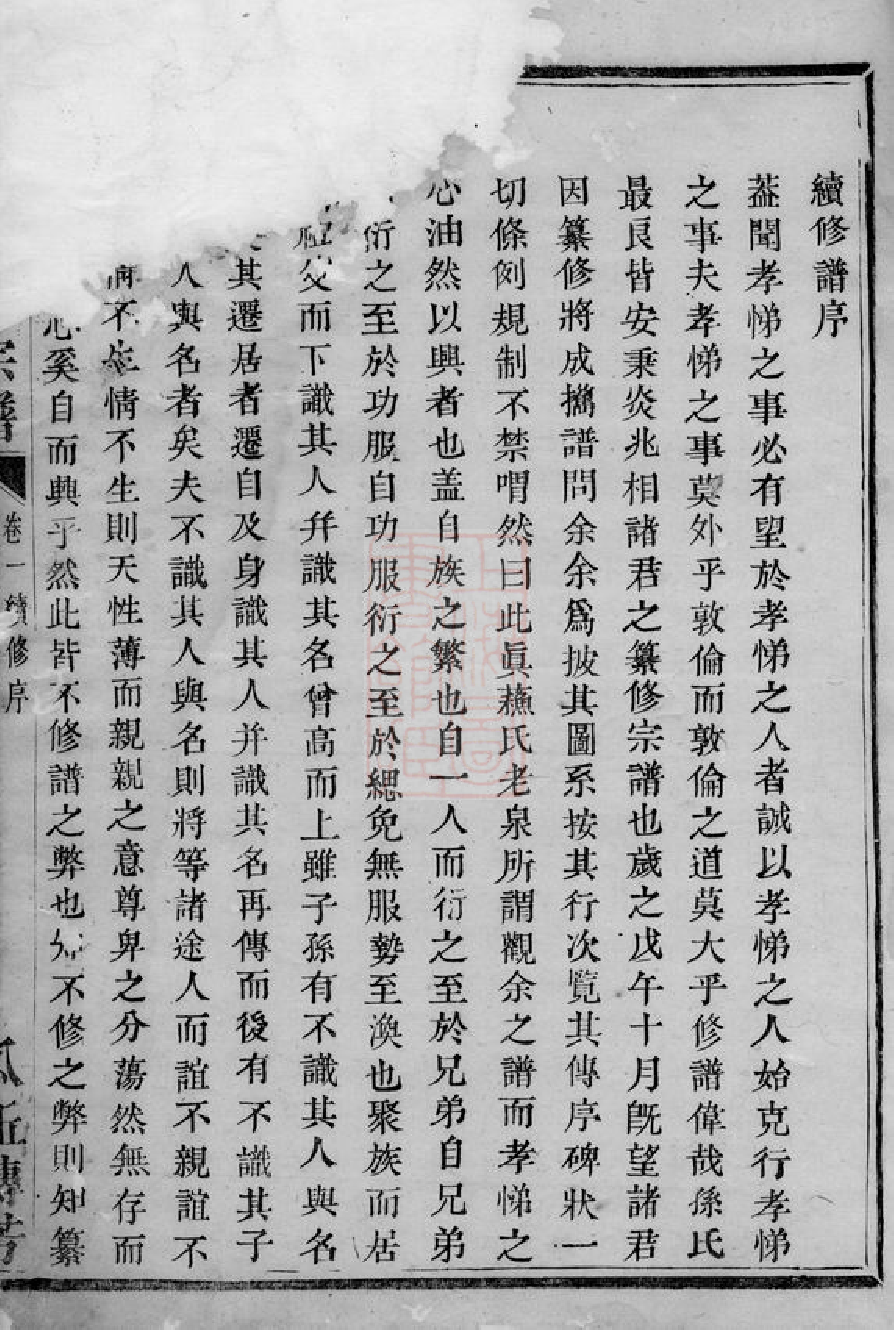 續修譜序
葢聞孝悌之事必有望於孝悌之人者誠以孝悌之人始克行孝悌
之事夫孝悌之事莫外乎敦倫而敦倫之道莫大乎修譜偉哉孫氏
最良皆安秉炎兆相諸君之纂修宗譜也歲之戊午十月旣望諸君
因纂修將成擕譜問余余爲披其圖系按其行次覧其傳序碑狀一
切條例規制不禁喟然曰此眞蘓氏老泉所謂觀余之譜而孝悌之
心油然以興者也盖自族之繁也自一人而衍之至於兄弟自兄弟
衍之至於功服自功服衍之至於緦免無服勢至渙也聚族而居
祖父而下識其人幷識其名曾高而上雖子孫有不識其人與名
其遷居者遷自及身識其人并識其名再傳而後有不識其子
人與名者矣夫不識其人與名則將等諸途人而誼不親誼不
不生情不生則天性薄而親親之意尊卑之分蕩然無存而
心奚自而興乎然此皆不修譜之弊也知不修之弊則知纂
宗譜
卷一續修序